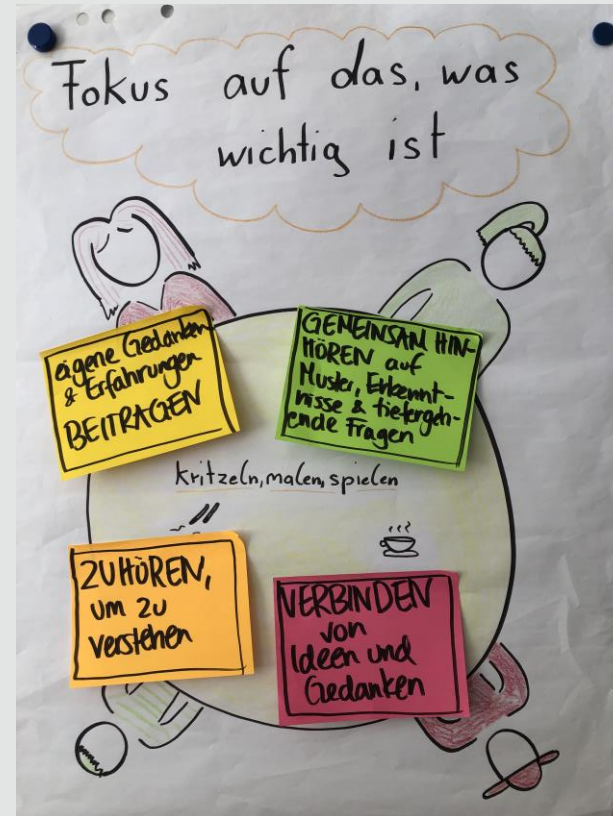 Fokus auf das, was
wichtig ist
eigene Gedanken
& Erfahrungen
BEITRAGEN
GEMEINSAM HIN-
HÖREN auf
Muster, Erkennt-
nisse & tiefergeh-
ende Fragen
kritzeln, malen, spielen
ZUHÖREN,
um zu
verstehen
VERBINDEN
von
Ideen und
Gedanken